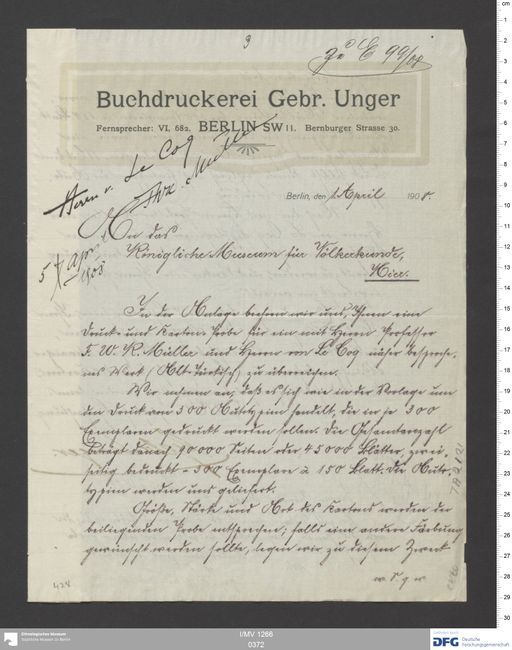 3
zu E 99/08
Buchdruckerei Gebr. Unger
Fernsprecher: VI, 682. BERLIN SW 11. Bernburger Strasse 30.
Herrn v. Le Coq
Müller
5/ April
1908
Berlin, den 1. April 1908.
An das
Königliche Museum für Völkerkunde,
Hier.
In der Anlage beehren wir uns, Ihnen eine
Druck- und Karton-Probe für ein mit Herrn Professor
F. W. K. Müller und Herrn von Le Coq näher besproche-
nes Werk (Alt-Türkisch) zu überreichen.
Wir nehmen an, daß es sich wie in der Vorlage um
den Druck von 300 handelt, die in je 300
Exemplaren gedruckt werden sollen. Die Gesamtanzahl
beträgt danach 90000 Seiten oder 45000 Blätter, zwei-
seitig bedruckt = 300 Exemplare à 150 Blatt. Die
werden uns geliefert.
Größe, Stärke und Art des Kartons werden der
beiliegenden Probe entsprechen; falls eine andere Färbung
gewünscht werden sollte, legen wir zu diesem Zweck
424
Ethnologisches Museum
Staatliche Museen zu Berlin
I/MV 1266
0372
DFG Deutsche
Forschungsgemeinschaft